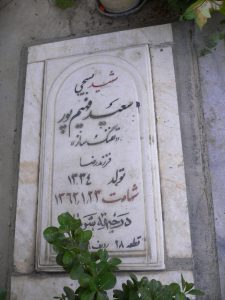 شهید بسیجی
سعید فهیم پور
"تفنگ ساز"
فرزند رضا
تولد ۱۳۳۴
شهادت ۱۳۶۲،۱،۲۳
قطعه ۲۸ ردیف